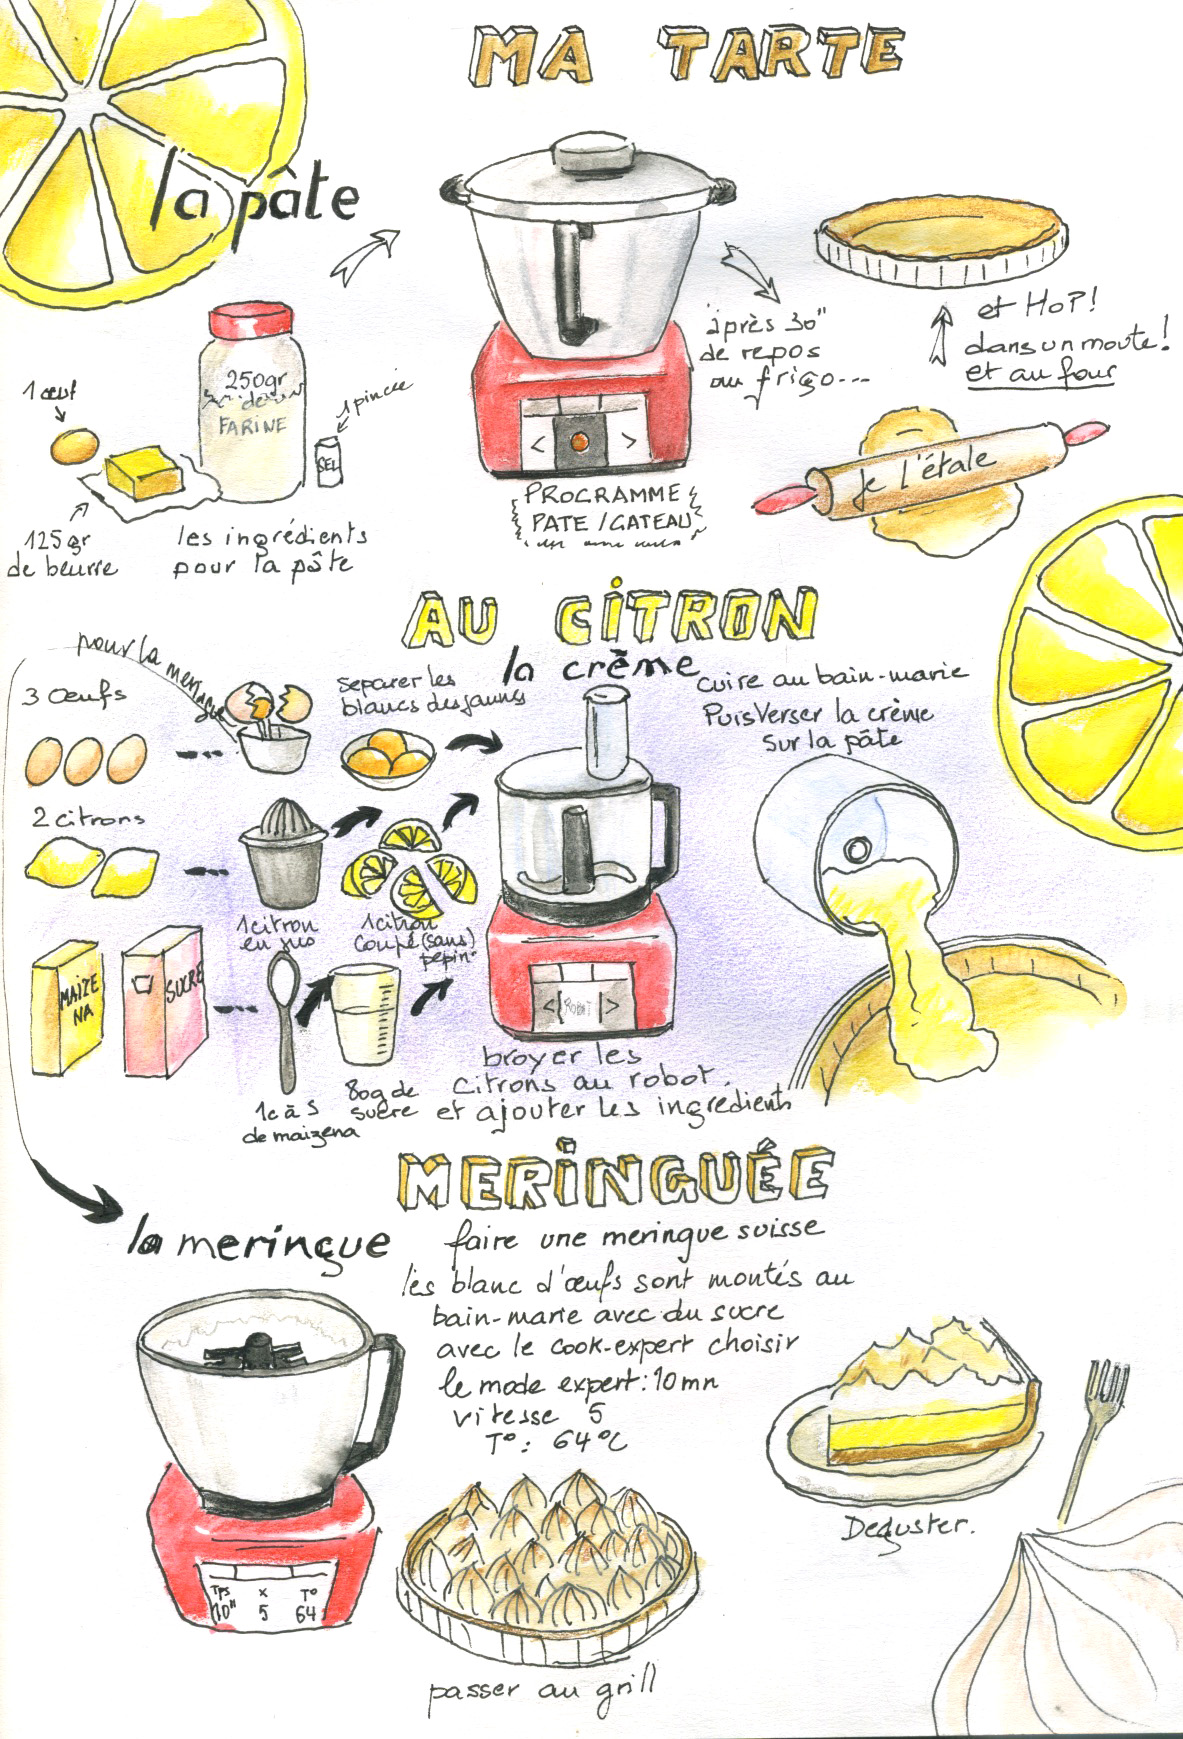 MA TARTE
la pâte
1 œuf
250gr
de
FARINE
1 pincée
SEL
125 gr
de beurre
les ingrédients
pour la pâte
PROGRAMME
PATE / GATEAU
après 30"
de repos
au frigo...
je l'étale
et HoP!
dans un moule!
et au four
AU CiTRON
la crème
pour la meringue
3 œufs
séparer les
blancs des jaunes
2 citrons
1 citron
en jus
1 citron
coupé (sans)
pépin
MAÏZE
NA
SUCRE
1c à S
de maïzena
80g de
sucre
<ROBOT>
broyer les
citrons au robot
et ajouter les ingrédients
cuire au bain-marie
Puis Verser la crème
sur la pâte
MERiNGUÉE
la meringue
faire une meringue suisse
les blanc d'œufs sont montés au
bain-marie avec du sucre
avec le cook-expert choisir
le mode expert: 10 mn
vitesse 5
T°: 64°C
Tps x T°
10" 5 64
passer au grill
Déguster.